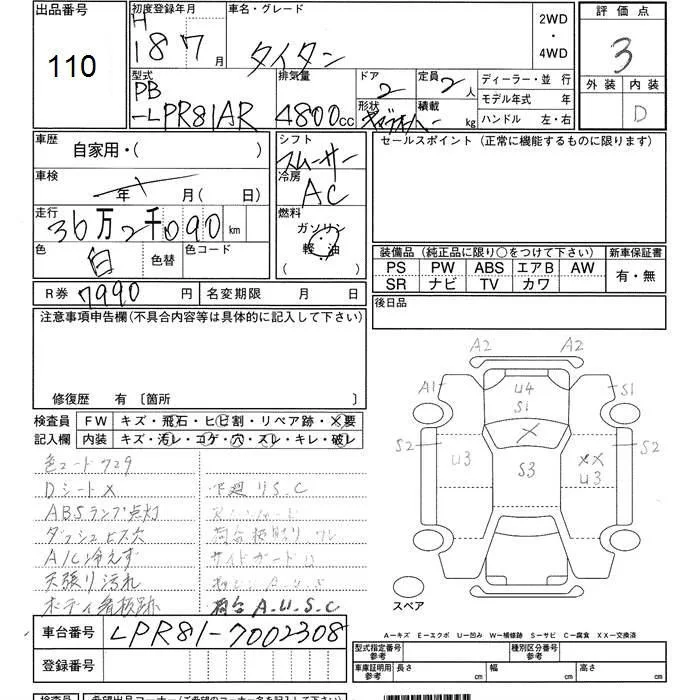 出品番号 110
初度登録年月 H 18年 7月
車名・グレード タイタン
2WD・4WD
評価点 3
外装 内装 D
型式 PB-LPR81AR
排気量 4800cc
ドア 2
形状
定員 2人
積載 kg
ディーラー・並行
モデル年式 年
ハンドル 左・右
車歴 自家用・( )
シフト
セールスポイント (正常に機能するものに限ります)
車検 年 月(日)
冷房 AC
走行 36万2千090km
燃料 ガソリン 軽油 ( )
色 白 色替 色コード
装備品 (純正品に限り○をつけて下さい) 新車保証書
PS PW ABS エアB AW 有・無
SR ナビ TV カワ
R券 7990円 名変期限 月 日
後日品
注意事項申告欄(不具合内容等は具体的に記入して下さい)
修復歴 有 〔箇所 〕
検査員記入欄
FW キズ・飛石・ヒビ割・リペア跡・X要
内装 キズ・汚レ・コゲ・穴・スレ・キレ・破レ
色コード729
Dシート×
ABSランプ点灯
ダッシュビス穴
A/C冷えず
天張り汚れ
ボディ看板跡
下廻りS.C
荷台 A.U.S.C
A2 A2
A1 U4 S1
S1
S2 U3 S3 XX U3 S2
X
スペア
A－キズ E－エクボ U－凹み W－補修跡 S－サビ C－腐食 XX－交換済
車台番号 LPR81-7002308
登録番号
型式指定番号 参考 種別区分番号 参考
車庫証明用 参考 長さ cm 幅 cm 高さ cm
検査員 希望出品コーナー(ご希望のコーナー名を記入